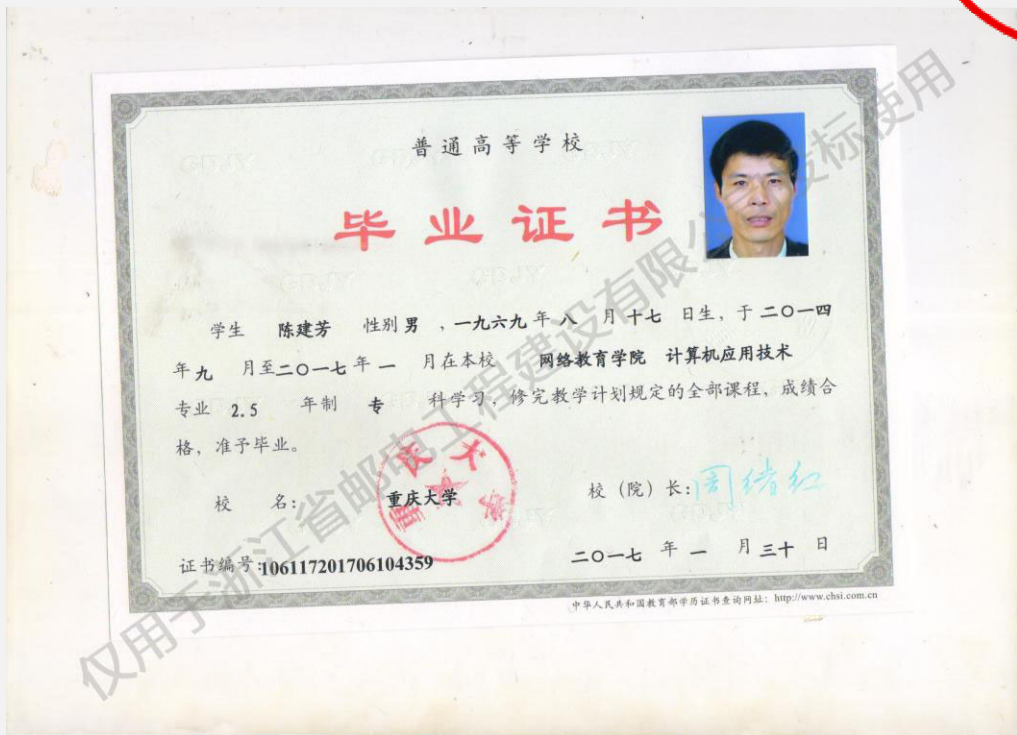 普通高等学校
毕业证书
学生 陈建芳 性别 男 ，一九六九 年 八 月 十七 日生，于 二〇一四
年 九 月至 二〇一七 年 一 月在本校 网络教育学院 计算机应用技术
专业 2.5 年制 专 科学习，修完教学计划规定的全部课程，成绩合
格，准予毕业。
校 名： 重庆大学
校（院）长： 周绪红
证书编号：106117201706104359
二〇一七 年 一 月 三十 日
中华人民共和国教育部学历证书查询网址：http://www.chsi.com.cn
仅用于浙江省邮电工程建设有限公司投标使用